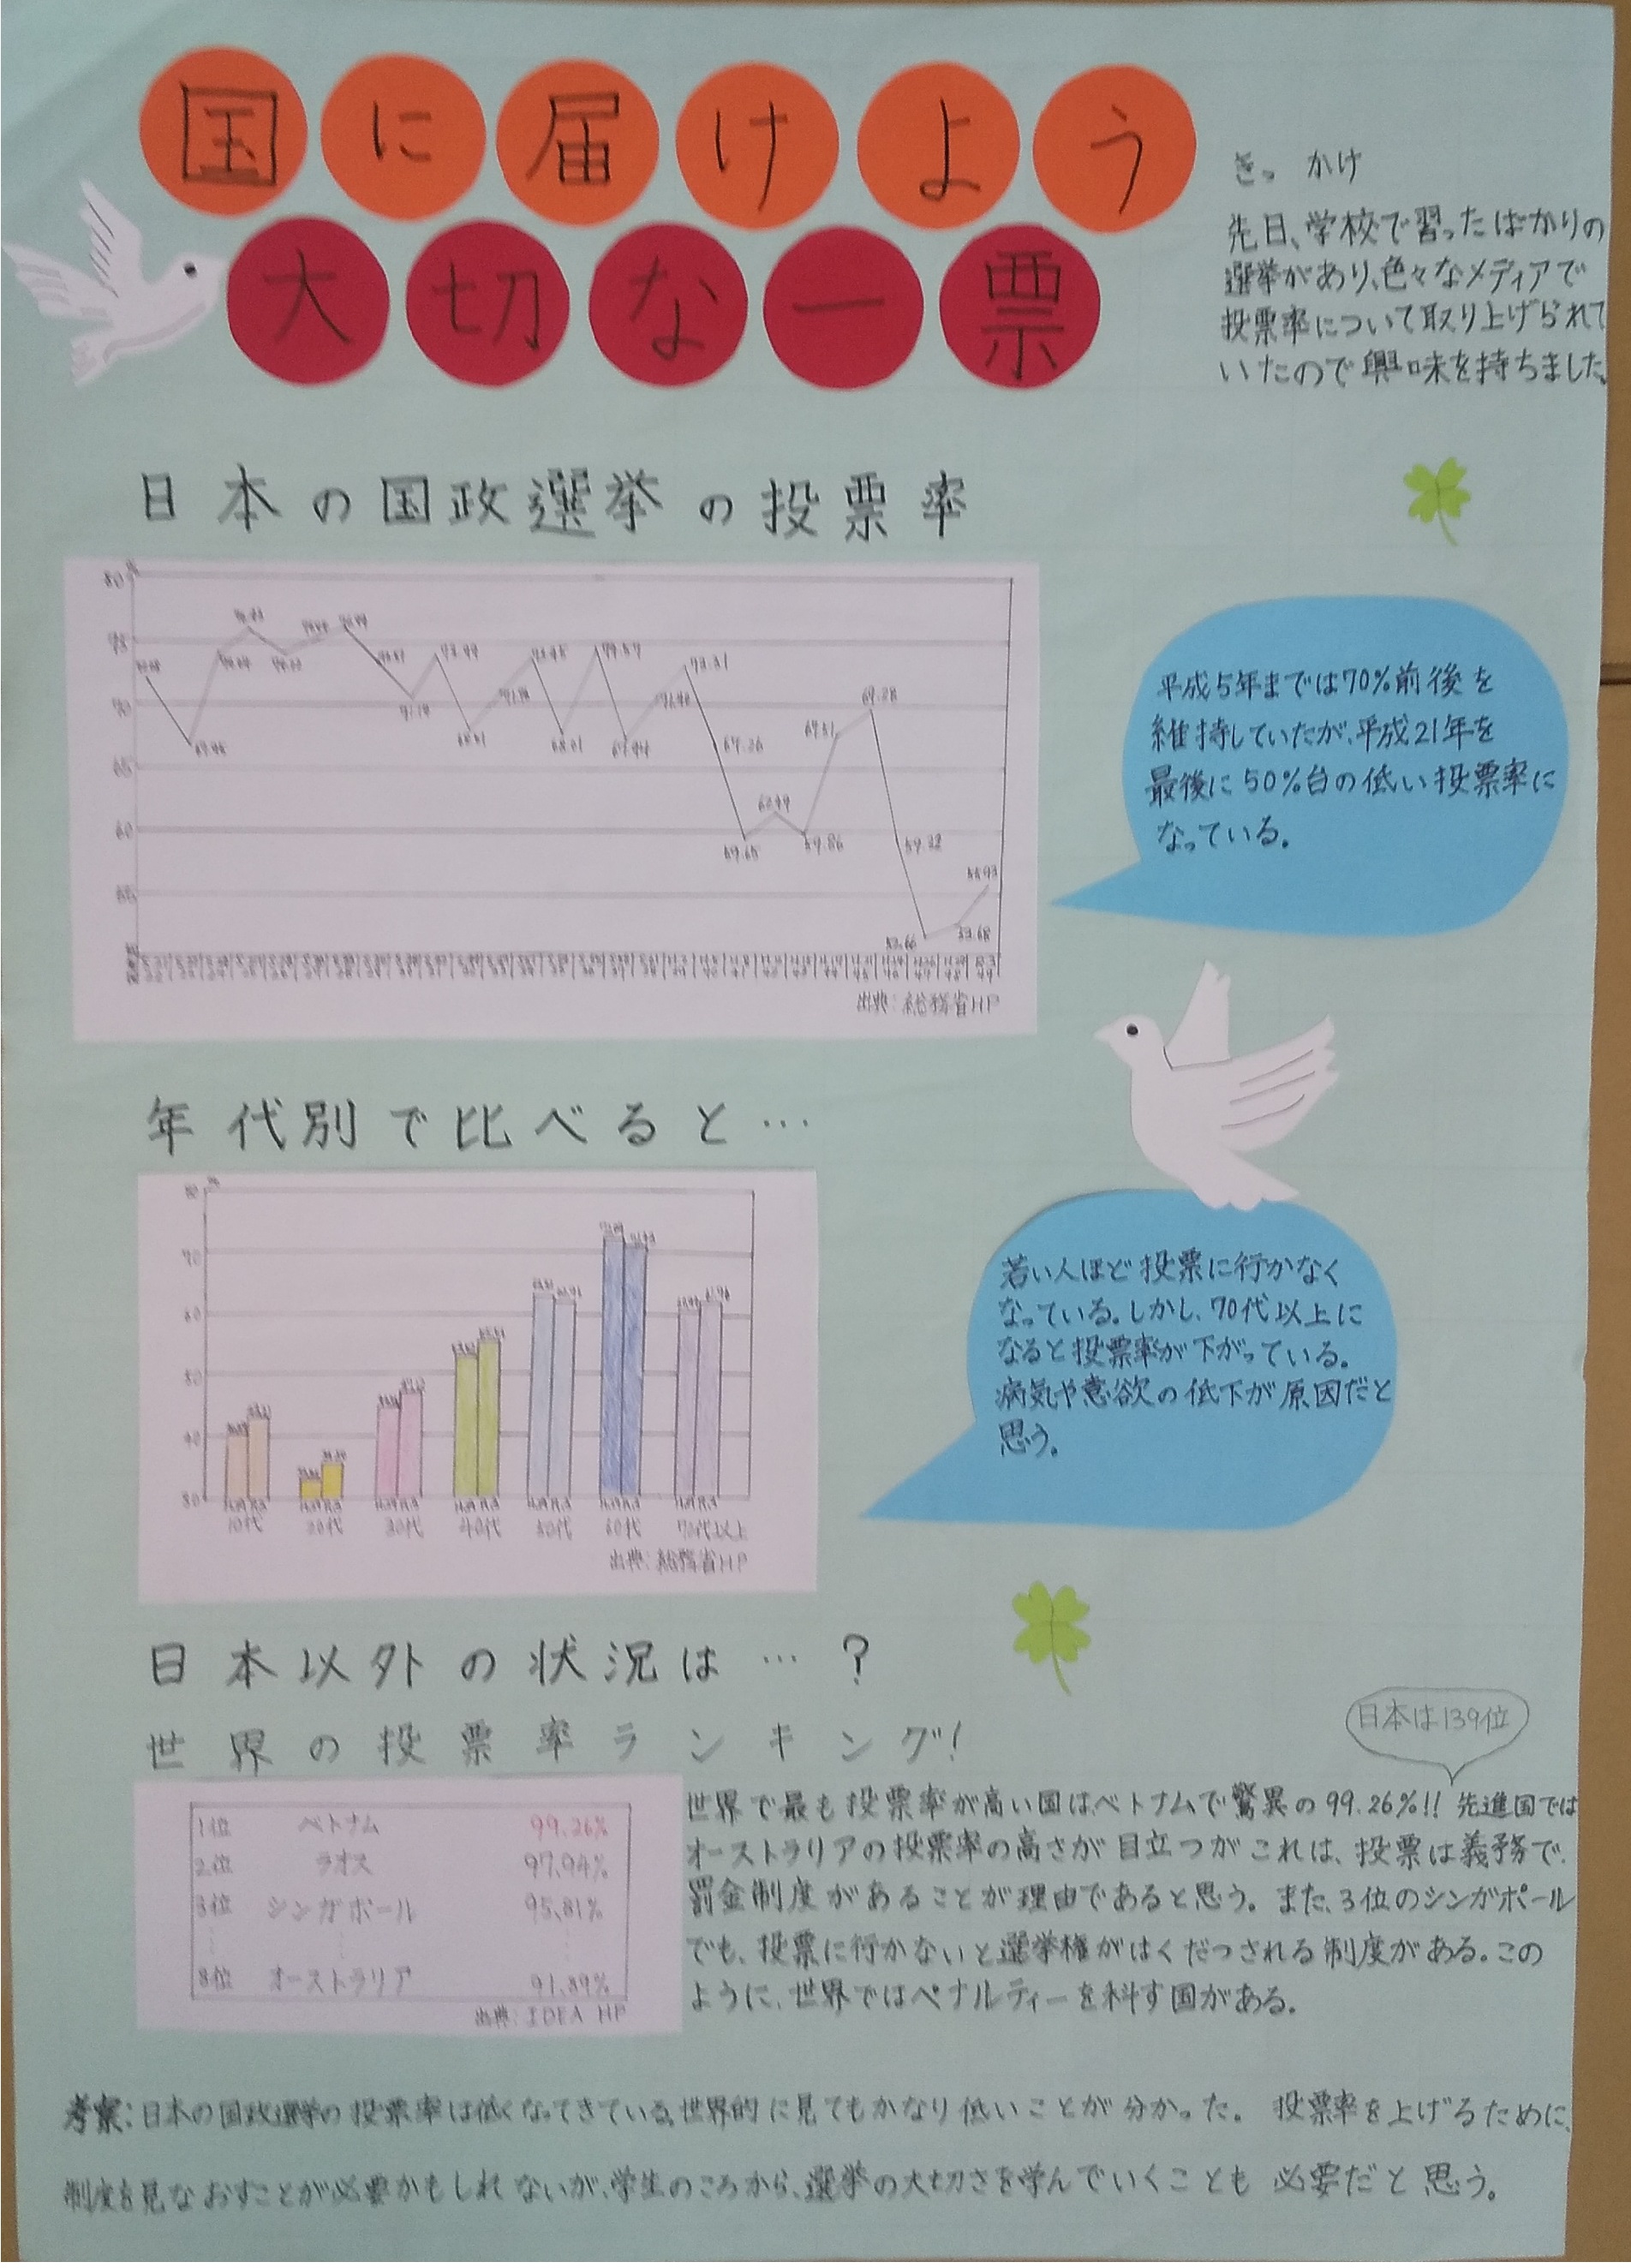 国に届けよう
大切な一票
きっかけ
先日、学校で習ったばかりの
選挙があり、色々なメディアで
投票率について取り上げられて
いたので興味を持ちました。
日本の国政選挙の投票率
80
%
75
70
65
60
55
67.95
71.14
73.49
68.51
73.45
68.01
74.57
67.94
71.40
73.31
67.26
59.65
62.49
59.86
67.51
69.28
59.32
52.66
53.68
55.93
出典：総務省HP
平成5年までは70%前後を
維持していたが、平成21年を
最後に50%台の低い投票率に
なっている。
年代別で比べると…
%
80
70
60
50
40
30
10代
20代
30代
40代
50代
60代
70代以上
出典：総務省HP
若い人ほど投票に行かなく
なっている。しかし、70代以上に
なると投票率が下がっている。
病気や意欲の低下が原因だと
思う。
日本以外の状況は…？
世界の投票率ランキング！
日本は139位
1位 ベトナム 99.26%
2位 ラオス 97.94%
3位 シンガポール 95.81%
8位 オーストラリア 91.89%
出典：IDEA HP
世界で最も投票率が高い国はベトナムで驚異の99.26%!! 先進国では
オーストラリアの投票率の高さが目立つがこれは、投票は義務で、
罰金制度があることが理由であると思う。また、3位のシンガポール
でも、投票に行かないと選挙権がはくだつされる制度がある。この
ように、世界ではペナルティーを科す国がある。
考察：日本の国政選挙の投票率は低くなってきている。世界的に見てもかなり低いことが分かった。 投票率を上げるために、
制度を見なおすことが必要かもしれないが、学生のころから、選挙の大切さを学んでいくことも必要だと思う。